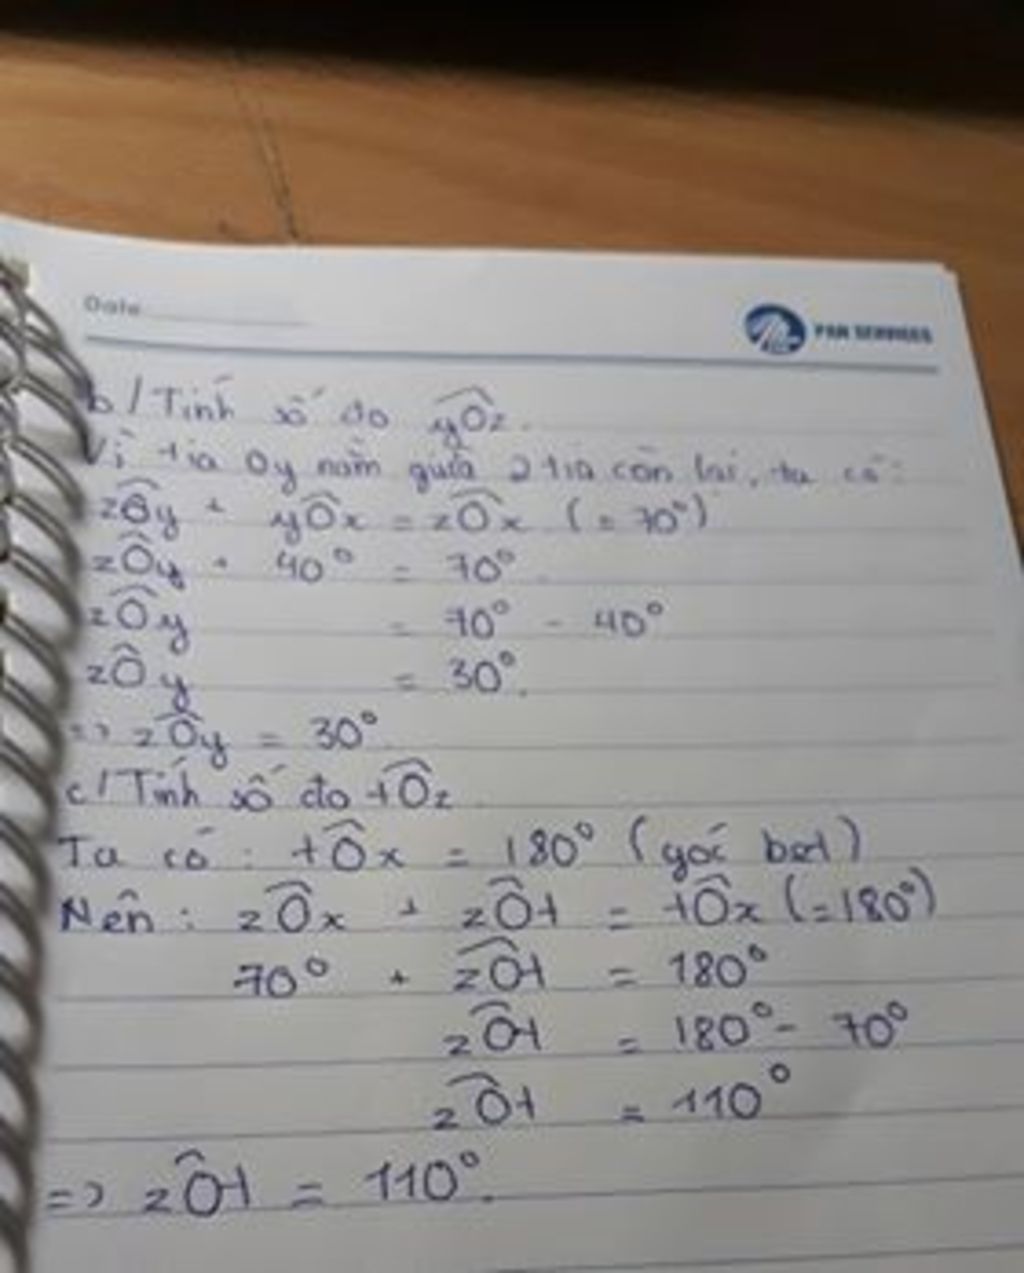 Date
PAN SERVICES
b/ Tính số đo yÔz.
Vì tia Oy nằm giữa 2 tia còn lại, ta có:
zÔy + yÔx = zÔx (= 70°)
zÔy + 40° = 70°
zÔy = 70° - 40°
zÔy = 30°.
=> zÔy = 30°
c/ Tính số đo tÔz
Ta có: tÔx = 180° (góc bẹt)
Nên: zÔx + zÔt = tÔx (=180°)
70° + zÔt = 180°
zÔt = 180° - 70°
zÔt = 110°
=> zÔt = 110°.